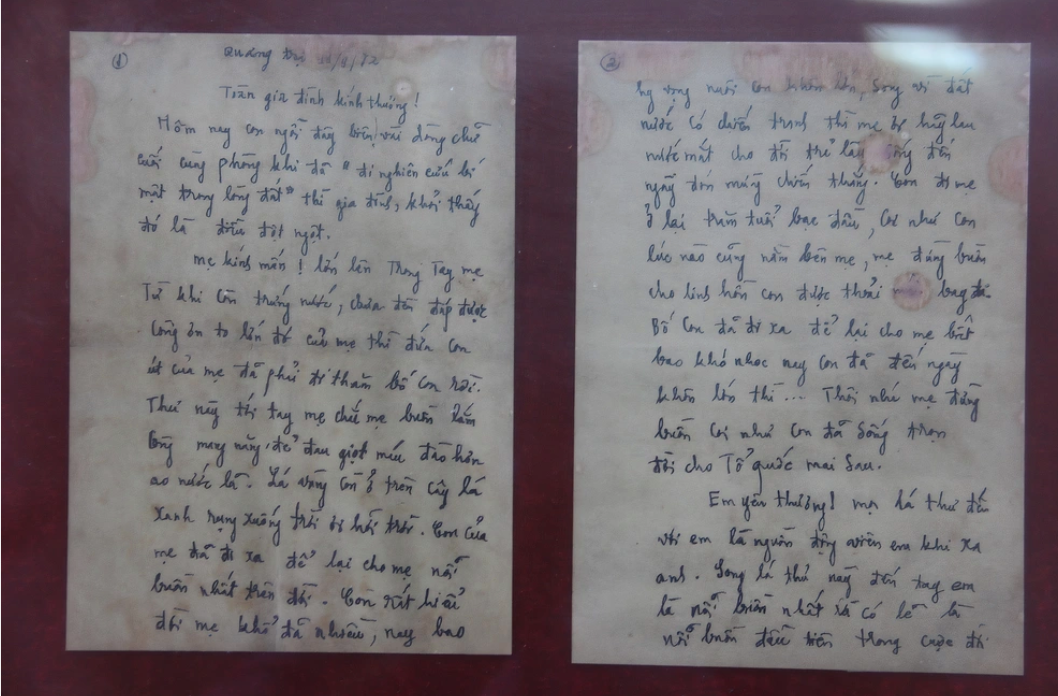 ①
Quảng trị 11/9/72
Toàn gia đình kính thương!
Hôm nay con ngồi đây biên vài dòng chữ
cuối cùng phòng khi đã "đi nghiên cứu bí
mật trong lòng đất" thì gia đình, khỏi thấy
đó là điều đột ngột.
mẹ kính mến! lớn lên Trong Tay mẹ
Từ khi còn trứng nước, chưa đền đáp được
công ơn to lớn đó của mẹ thì đứa con
út của mẹ đã phải đi thăm bố con rồi.
Thư này tới tay mẹ chắc mẹ buồn lắm
Công mang nặng đẻ đau giọt máu đào hơn
ao nước lã. Lá vàng còn ở trên cây lá
xanh rụng xuống trời ơi hỡi trời. Con của
mẹ đã đi xa để lại cho mẹ nỗi
buồn nhất trên đời. Con rất hiểu
đời mẹ khổ đã nhiều, nay bao
②
hy vọng nuôi con khôn lớn, Song vì đất
nước có chiến tranh thì mẹ ơi hãy lau
nước mắt cho đời trẻ lấy sống đến
ngày đón mừng chiến thắng. Con đi mẹ
ở lại trăm tuổi bạc đầu, coi như con
lúc nào cũng nằm bên mẹ, mẹ đừng buồn
cho linh hồn con được thoải mái bay đi.
Bố con đã đi xa để lại cho mẹ biết
bao khó nhọc nay con đã đến ngày
khôn lớn thì... Thôi nhé mẹ đừng
buồn coi như con đã sống trọn
đời cho Tổ quốc mai sau.
Em yêu thương! mọi lá thư đến
với em là nguồn động viên em khi xa
anh. Song lá thư này đến tay em
là nỗi buồn nhất và có lẽ là
nỗi buồn đầu tiên trong cuộc đời